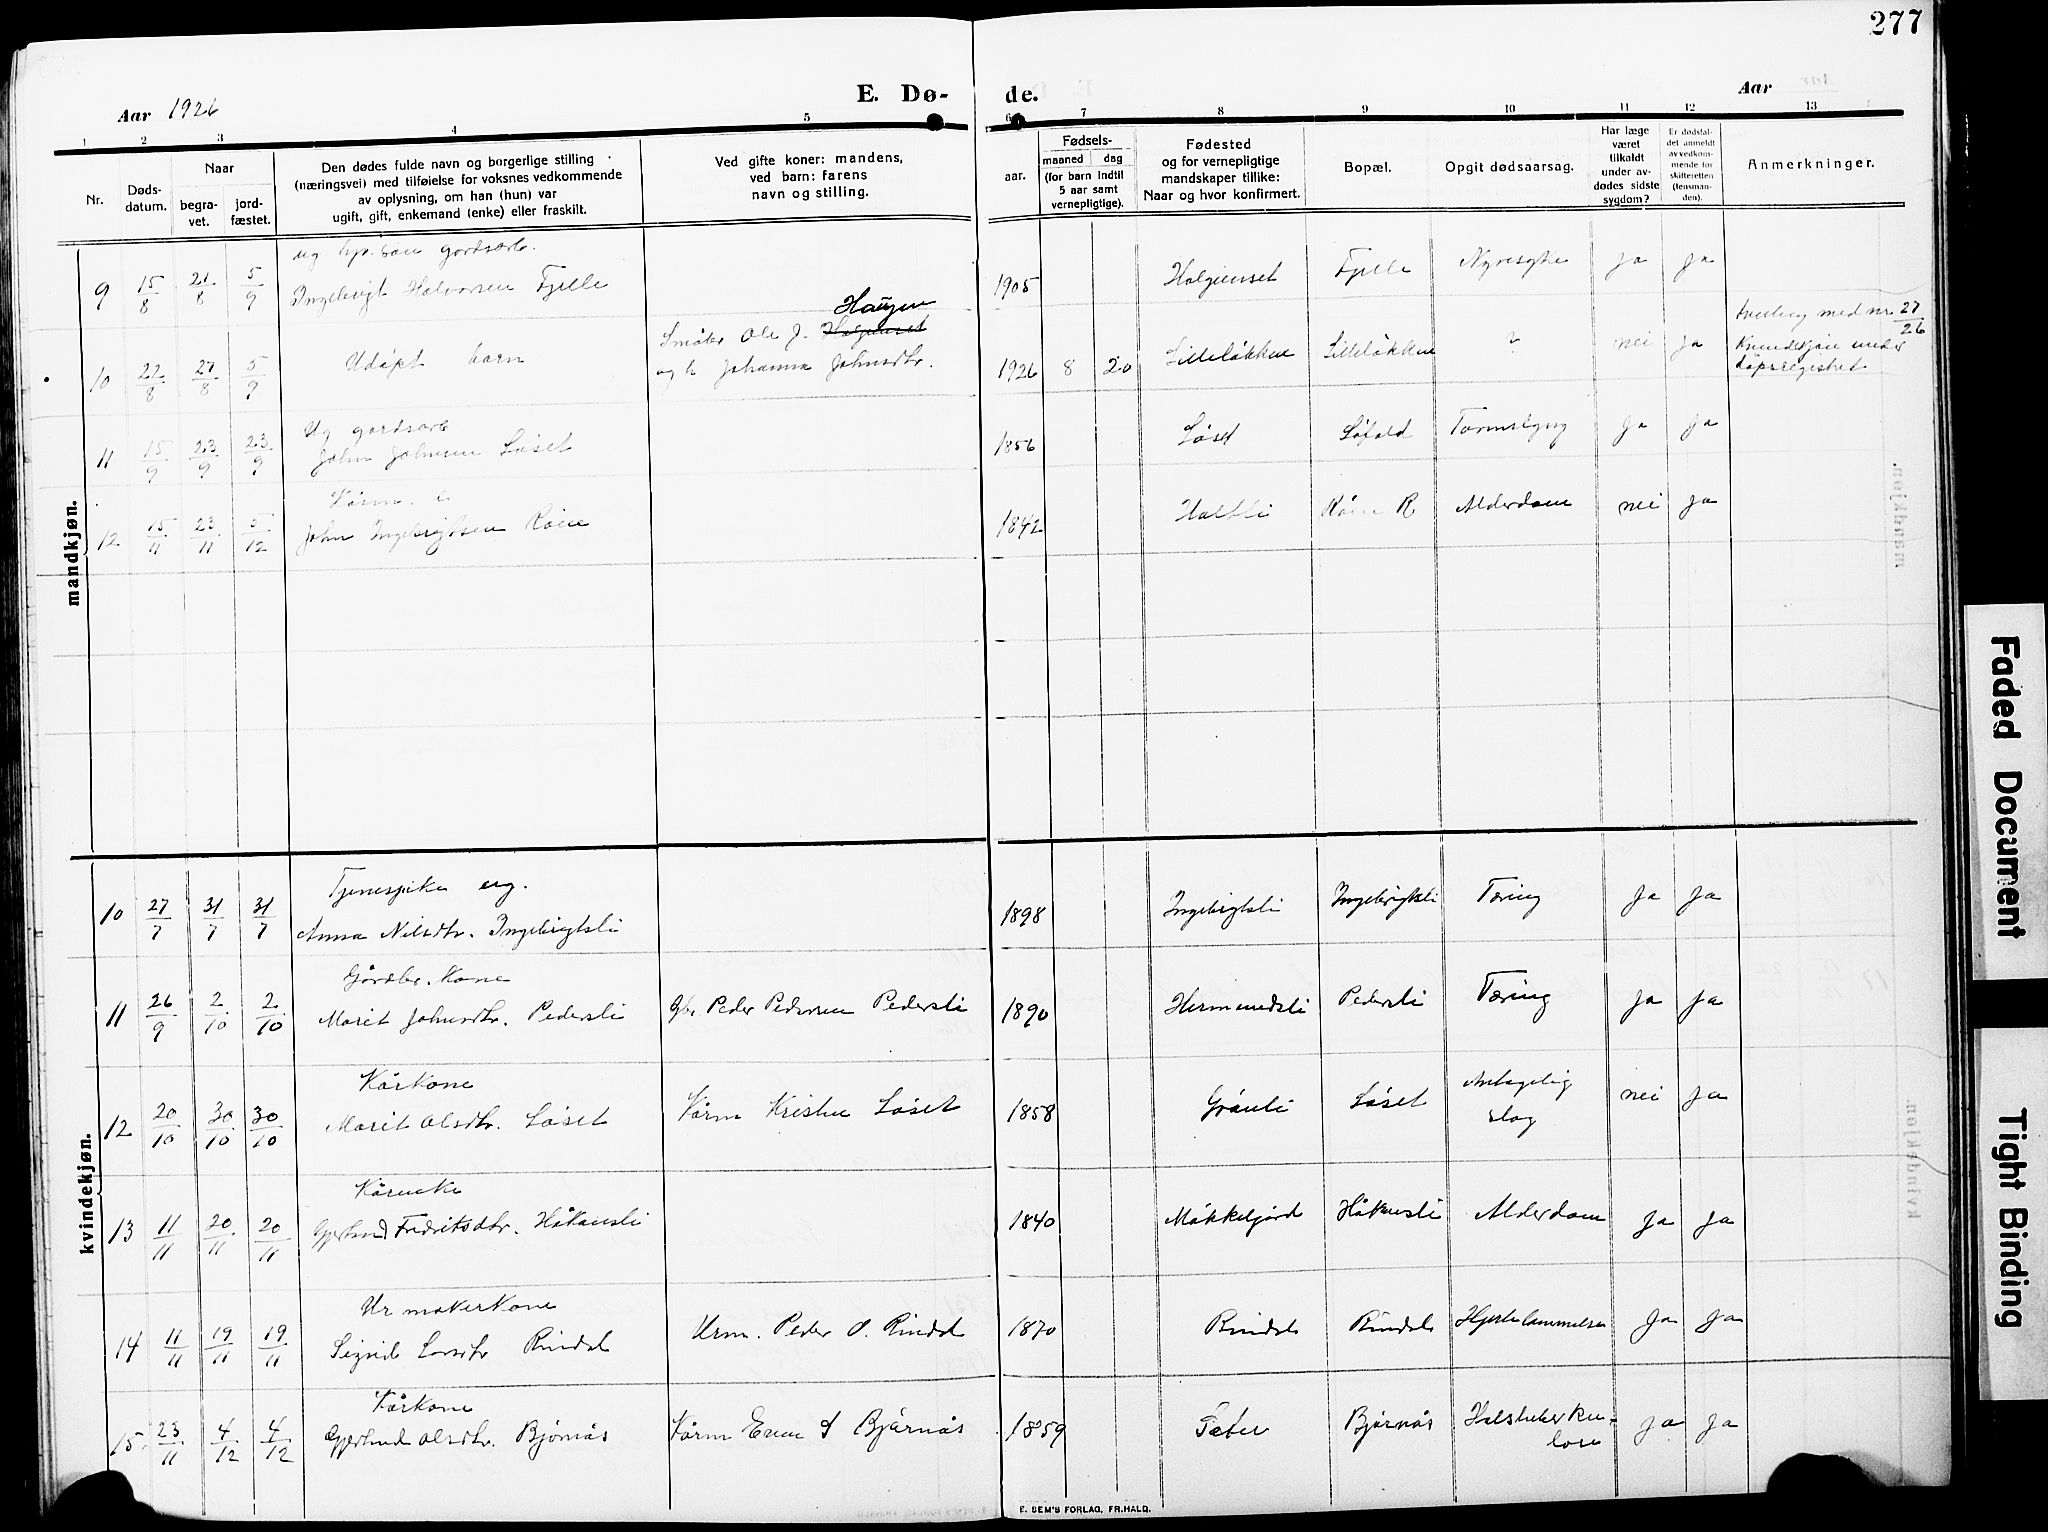 277
Aar 1926
E. Dø- de.
Aar
1 2 3 4 5 6 7 8 9 10 11 12 13
Nr.
Døds-
datum.
Naar
begra-
vet.
jord-
fæstet.
Den dødes fulde navn og borgerlige stilling
(næringsvei) med tilføielse for voksnes vedkommende
av oplysning, om han (hun) var
ugift, gift, enkemand (enke) eller fraskilt.
Ved gifte koner: mandens,
ved barn: farens
navn og stilling.
Fødsels-
aar.
maaned dag
(for barn indtil
5 aar samt
vernepligtige).
Fødested
og for vernepligtige
mandskaper tillike:
Naar og hvor konfirmert.
Bopæl.
Opgit dødsaarsag.
Har læge
været
tilkaldt
under av-
dødes sidste
sygdom?
Er dødsfal-
det anmeldt
av vedkom-
mende for
skifteretten
(lensman-
den).
Anmerkninger.
mandkjøn.
ug gardsarb.
9 15/8 21/8 5/9 Ingebrigt Halvorsen Fjelle 1905 Halgunset Fjelle Nyresyke ja ja
Haugen
Småbr Ole J. Halgunset
10 22/8 27/8 5/9 Udøpt barn og h Johanna Johnsdtr. 1926 8 20 Lilleløkken Lilleløkken ? nei ja
Tvilling med nr 27/26
Kvindekjøn under
døpsregistret
Ug gardsarb
11 15/9 23/9 23/9 John Johnsen Løset 1856 Løset Løfald Tarmslyng Ja Ja
Kårm. e
12 15/11 23/11 5/12 John Ingebrigtsen Røen 1842 Holtli Røen R Alderdom nei ja
kvindekjøn.
Tjenespike ug.
10 27/7 31/7 31/7 Anna Nilsdtr. Ingebrigtsli 1898 Ingebrigtsli Ingebrigtsli Tæring Ja Ja
Gårdbr. Kone
11 26/9 2/10 2/10 Marit Johnsdtr. Pedersli Gbr Peder Pedersen Pedersli 1890 Hermundsli Pedersli Tæring Ja Ja
Kårkone
12 20/10 30/10 30/10 Marit Olsdtr. Løset Kårm Kristen Løset 1858 Grønli Løset Antagelig
slag nei Ja
Kårenke
13 11/11 20/11 20/11 Gjertrud Fredriksdtr. Håkansli 1840 Møkkelgjerd Håkansli Alderdom Ja Ja
Urmakerkone
14 11/11 19/11 19/11 Sigrid Larsdtr Rindal Urm. Peder O. Rindal 1870 Rindal Rindal Hjertelammelse Ja Ja
Kårkone
15 23/11 4/12 4/12 Gjertrud Olsdtr. Bjørnås Kårm Even I Bjørnås 1859 Sæter Bjørnås Halstuberku-
lose Ja Ja
E. SEM'S FORLAG, FR.HALD.
Faded Document
Tight Binding